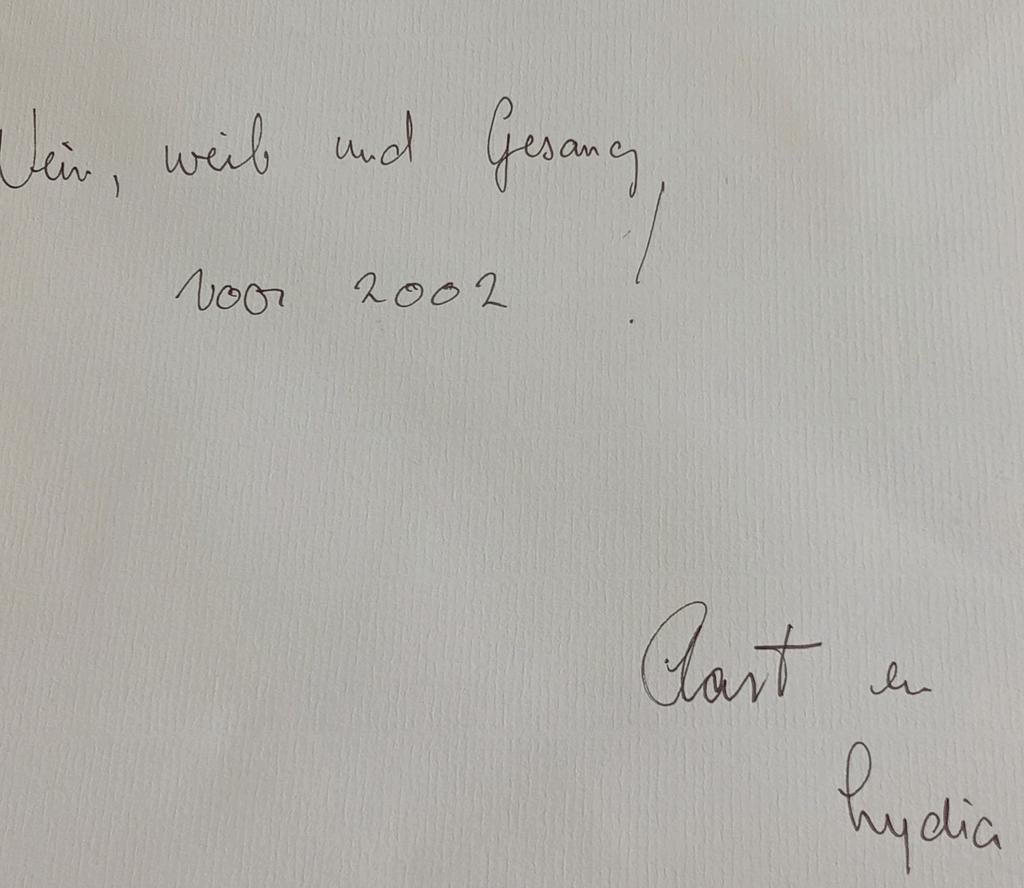 Wein, weib und Gesang
voor 2002 !
Aart en
Lydia